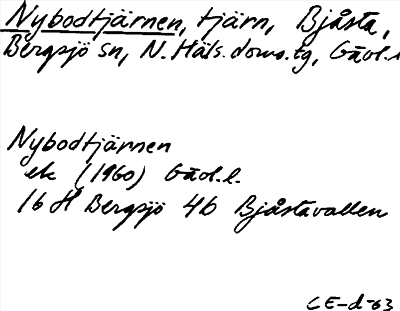 Nybodtjärnen, tjärn, Bjåsta,
Bergsjö sn, N. Häls. doms.tg, Gävl.l
Nybodtjärnen
ek (1960) Gävl.l.
16 H Bergsjö 4b Bjåstavallen
CE-d-63